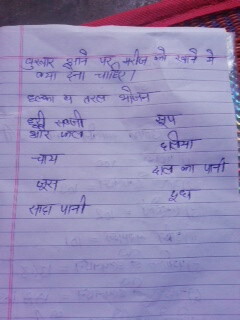 बुखार आने पर मरीज को खाने में
क्या देना चाहिए।
हल्का व तरल भोजन
हरी सब्जी
और फल
सूप
दलिया
चाय
दाल का पानी
जूस
दूध
सादा पानी